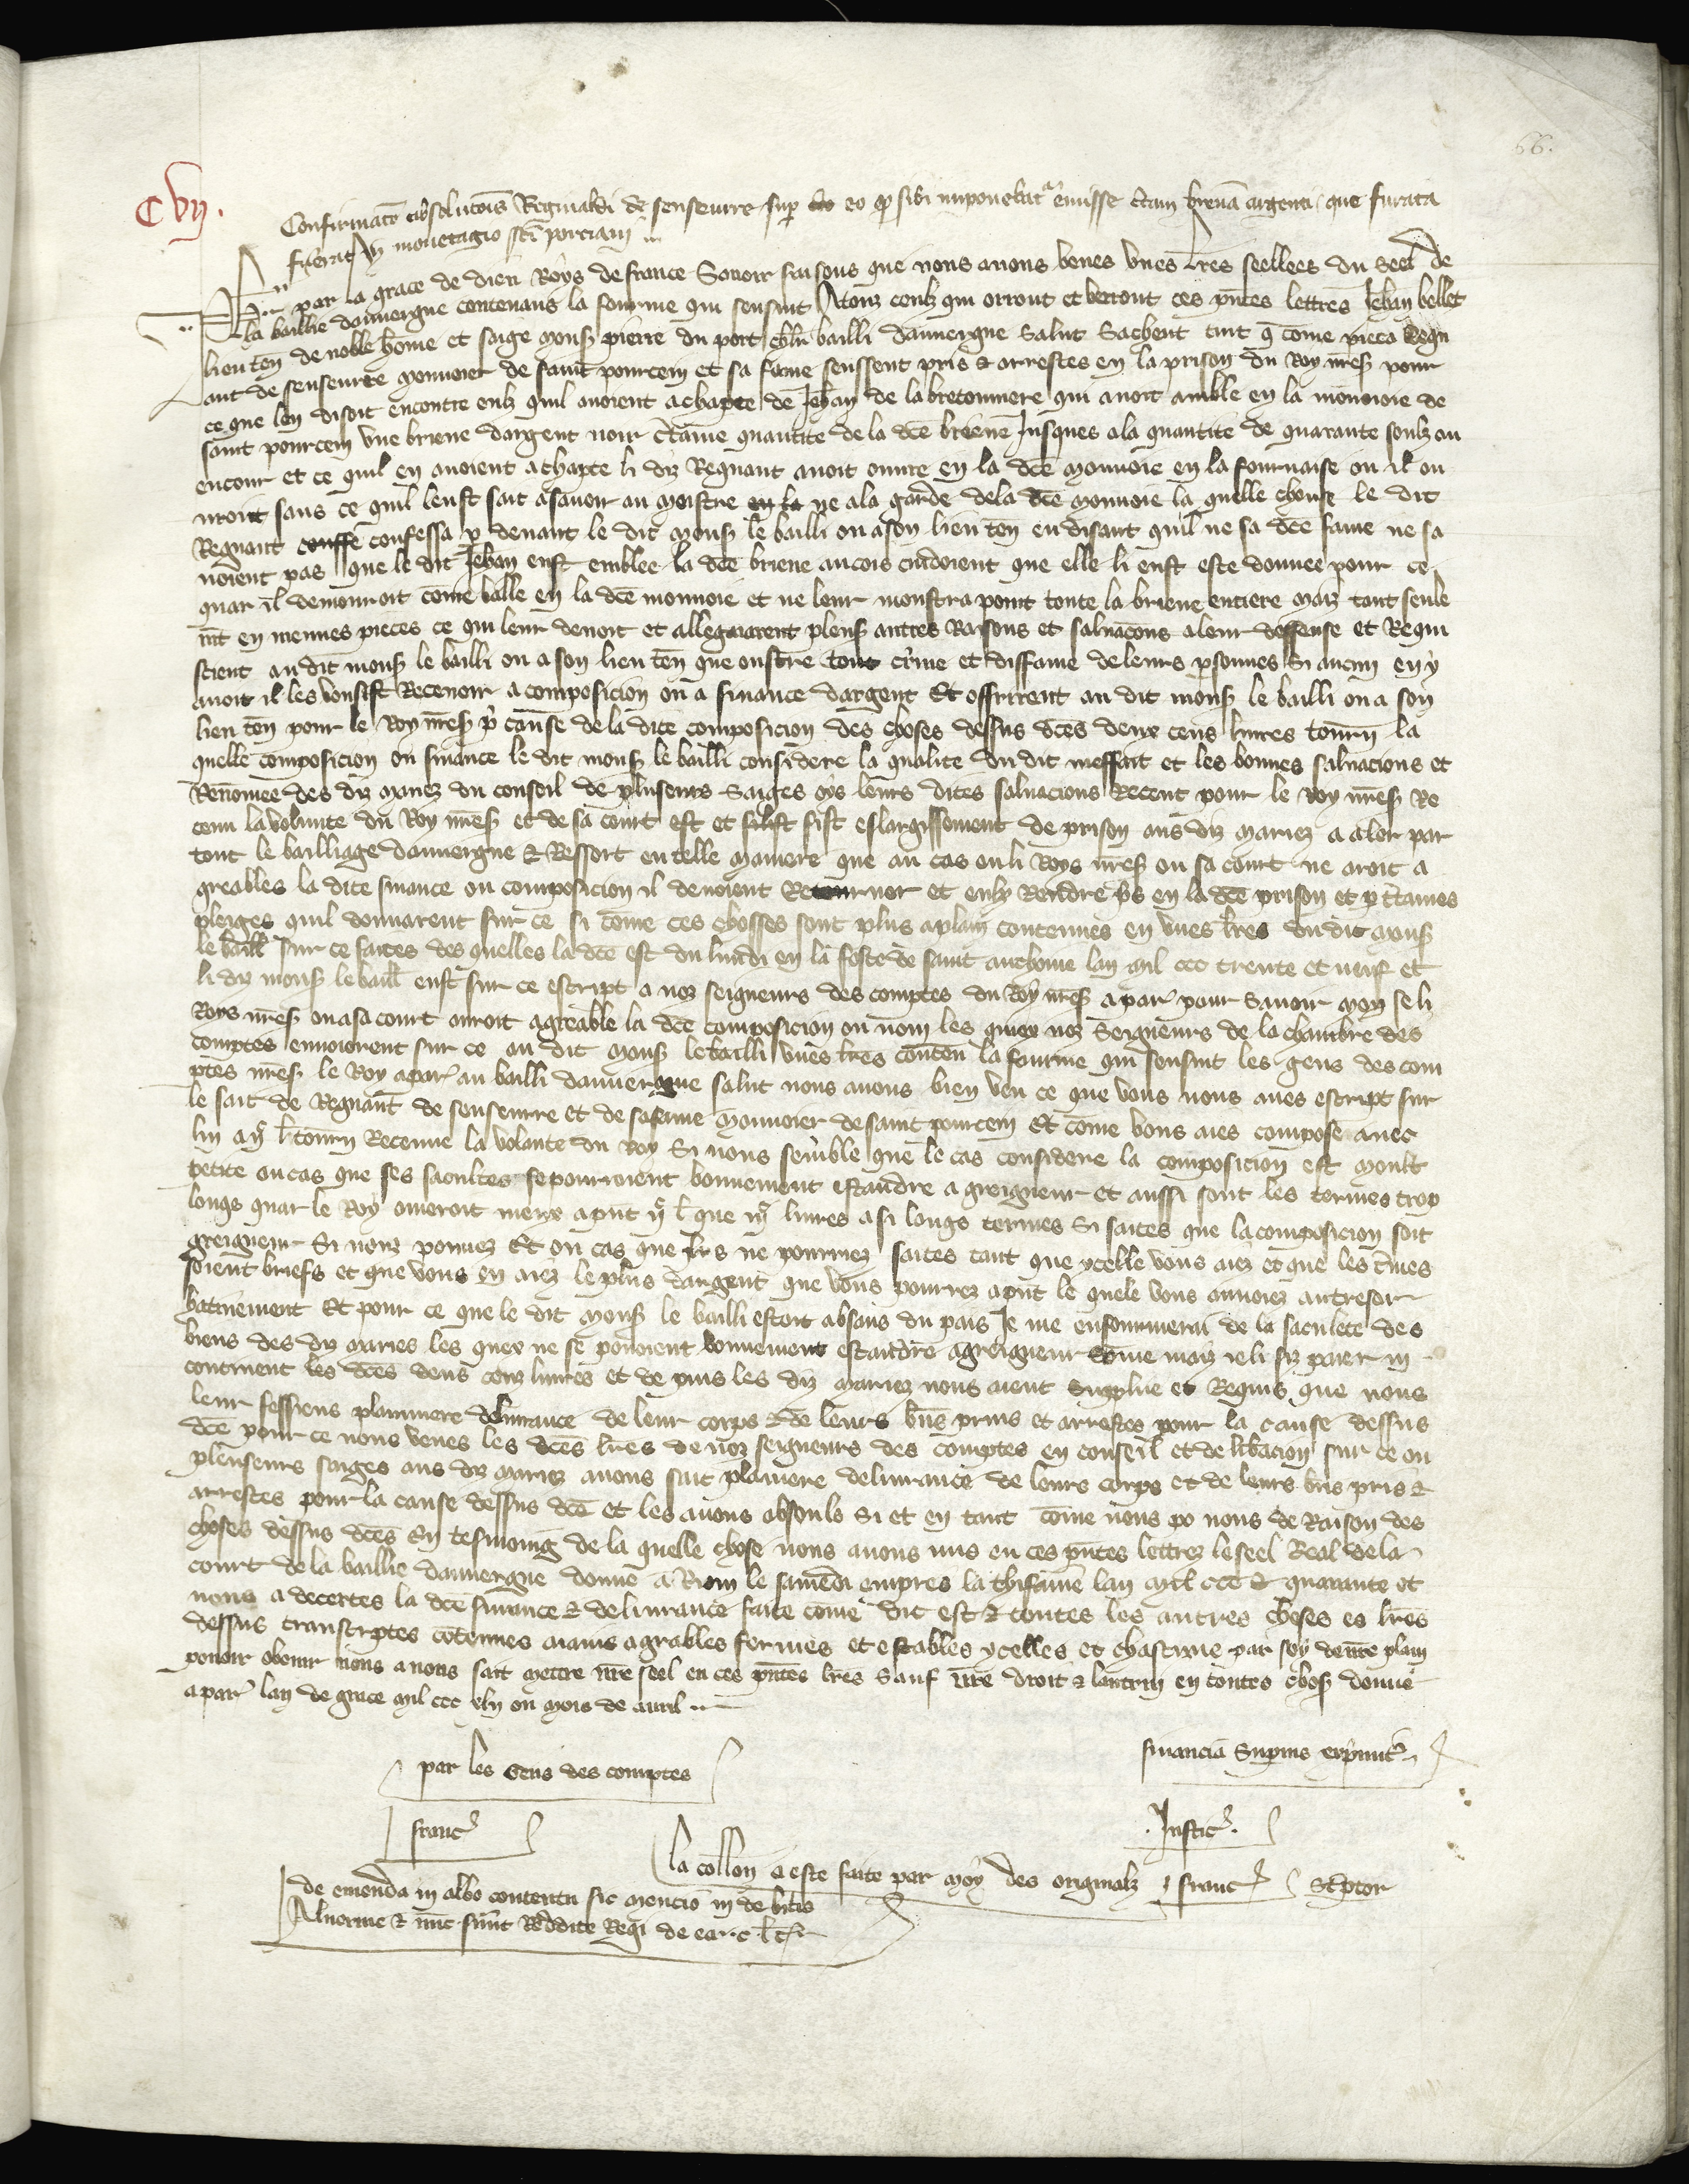 66.
CVII.
Confirmatō absolucōis Reginaldi de senseurre sup eo qd sibi imponebat emisse ctam brenā argenti que furata
fuerat in monetagio scī porciani
Ph par la grace de dieu Roys de france Savoir faisons que nous avons veues unes lrēs seellees du Seel de
la baillie dauvergne contenans la fourme qui sensuit A touz ceulz qui orront et verront ces pntēs lettres Jehan bellet
lieuten de noble home et saige mons pierre du port chlr bailli dauvergne Salut Sachent tuit q come pieca Regn
aut de senseurre monnoier de saint pourcein et sa fame feussent pris & arrestes en la prison du Roy nrēs pour
ce que len disoit encontre eulz quil avoient achapte de Jehan de labretonniere qui avoit amble en la monnoie de
saint pourcein une briene dargent noir ctaine quantite de la dcē briene Jusques ala quantite de quarante soulz ou
encour et ce quil en avoient achapte li diz Regnaut avoit ouvre en la dcē monnoie en la fournaise ou il ou
vroit sans ce quil leust fait asavoir au maistre en la ne ala garde dela dcē monnoie la quelle chouse le dit
Regnaut conffe confessa p devant le dit mons le bailli ou ason lieu ten en disant quil ne sa dcē fame ne sa
voient pas que le dit Jehan eust emblee la dcē briene ancois cuidoient que elle li eust este donnee pour ce
quar il demouroit come valle en la dcē monnoie et ne leur monstra point toute la briene entiere maiz tant seule
mt en menues pieces ce qui leur devoit et allegarent pleus autres Raisons et salvacōns aleur deffense et Requi
strent au dit mons le bailli ou a son lieu ten que oustre tout crime et diffame de leurs psonnes Si aucun en y
avoit il les vousist Recevoir a composicion ou a finance dargent Et offrirent au dit mons le bailli ou a son
lieu ten pour le Roy nrēs p cause de la dite composicion des choses dessus dcēs deux cens livres tourn la
quelle composicion ou finance le dit mons le bailli considere la qualite du dit meffait et les bonnes salvacions et
Renomee des diz mariez du conseil de pluseurs Saiges oys leurs dites salvacions Receut pour le Roy nrēs Re
tenu la volunte du Roy nrēs et de sa court est et fist eslargissement de prison aus diz mariez a aler par
tout le bailliage dauvergne & Ressort en telle maniere que au cas ou li Roys nrēs ou sa court ne aroit a
greables la dite finance ou composicion il devoient Retourner et eulx Rendre ps en la dcē prison et p ctaines
pleiges quil donnarent sur ce si come ces chosses sont plus aplain contenues en unes lrēs du dit mons
le baill sur ce faites des quelles la dcē est du lundi en la feste de saint anthoine lan mil ccc trente et neuf et
li diz mons le baill eust sur ce escript a noz seigneurs des comptes du Roy nrēs a par pour Savoir mon se li
Roys nrēs ou asa court auroit agreable la dcē composicion ou nom les quiex noz Seigneurs de la chambre des
comptes envoierent sur ce au dit mons le bailli unes lrēs conten la fourme qui sensuit les gens des com
ptes nrēs le Roy apar au bailli dauvergne salut nous avons bien veu ce que vous nous aves escript sur
le fait de Regnaut de senseurre et de safame monnoier de saint pourcein Et come vous aies compose avec
lui a IIc l tourn Retenue la volante du Roy Si nous semble que le cas considere la composicion est moult
petite oucas que ses facultes se pourroient bonnement estandre a greigneur et aussi sont les termes trop
longs quar le Roy ameroit mieux aprnt IIc l que IIIc livres a si longs termes Si faites que la composicion soit
greigneur Si vouz pouvez Et ou cas que vous ne pourriez faites tant que ycelle vous aiez et que les tmes
soient briefs et que vous en aiez le plus dargent que vous pourrez aprnt le quele vous anvoiez autresor
batinement Et pour ce que le dit mons le bailli estoit absans du pais Je me enfourmerai de la faculete des
biens des diz maries les quex ne se povoient bonnement estandre agreigneur some maiz ieli fiz paier in
continent les dcēs deus cenz livres et de puis les diz mariez nous aient Supplie et Requis que nous
leur fessiens planniere delivrance de leur corps & de leurs bns prins et arrestes pour la cause dessus
dcē pour ce nous veues les dcēs lrēs de noz seigneurs des comptes en conseil et deliberacion sur ce ou
pleuseurs saiges aus diz mariez avons fait planiere delivrance de leurs corps et de leurs bns pris &
arrestes pour la cause dessus dcē et les avons absouls Si et en tant come nous po nous de Raison des
choses dessus dcēs En tesmoing de la quelle chose nous avons mis en ces pntēs lettrez leseel Real dela
court de la baillie dauvergne donne a Riom le samedi empres la thifaine lan mil ccc & quarante et
nous a decertes la dcē finance & delivrance faite come dit est & toutes les autres choses es lrēs
dessus transcriptes contenues aians agrables fermes et estables ycelles et chascune par soy de nre plain
povoir nous avons fait mettre nre seel en ces pntēs lrēs Sauf nre droit & lautrui en toutes chos donne
a par lan de grace mil ccc xliij ou mois de avril
par les Gens des comptes
financiā Supius exprimit
franc
Justic
la collon a este faite par moy des originalz franc Sc̄ptor
de emenda in albo contentu fit mencio in debitis
Alvernie & nuc sunt Reddite Regi de